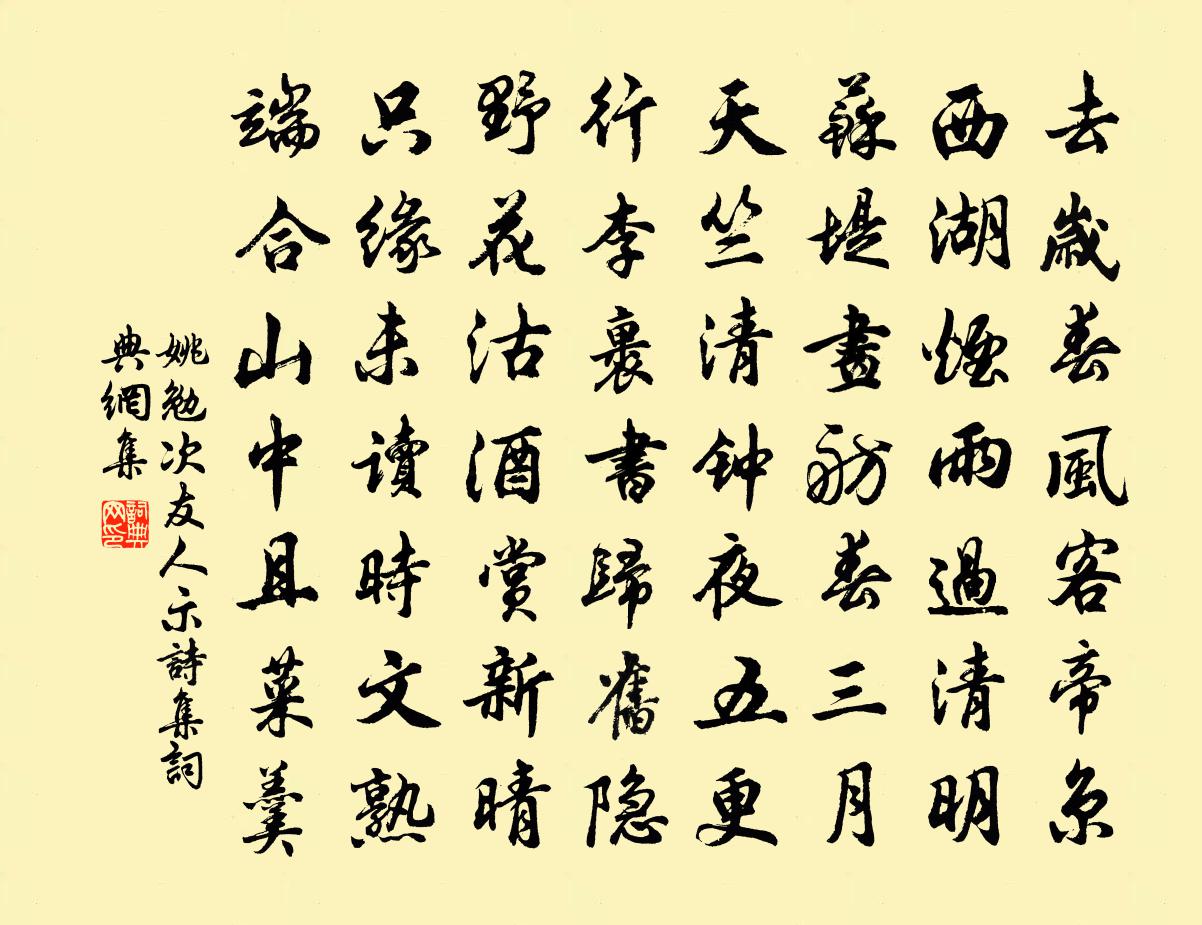 去歲春風客帝京
西湖煙雨過清明
蘇堤畫舫春三月
天竺清钟夜五更
行李裹書歸舊隐
野花沽酒賞新晴
只緣未讀時文熟
端合山中且菜羹
姚勉次友人示詩集詞
典網集
詞典
网印